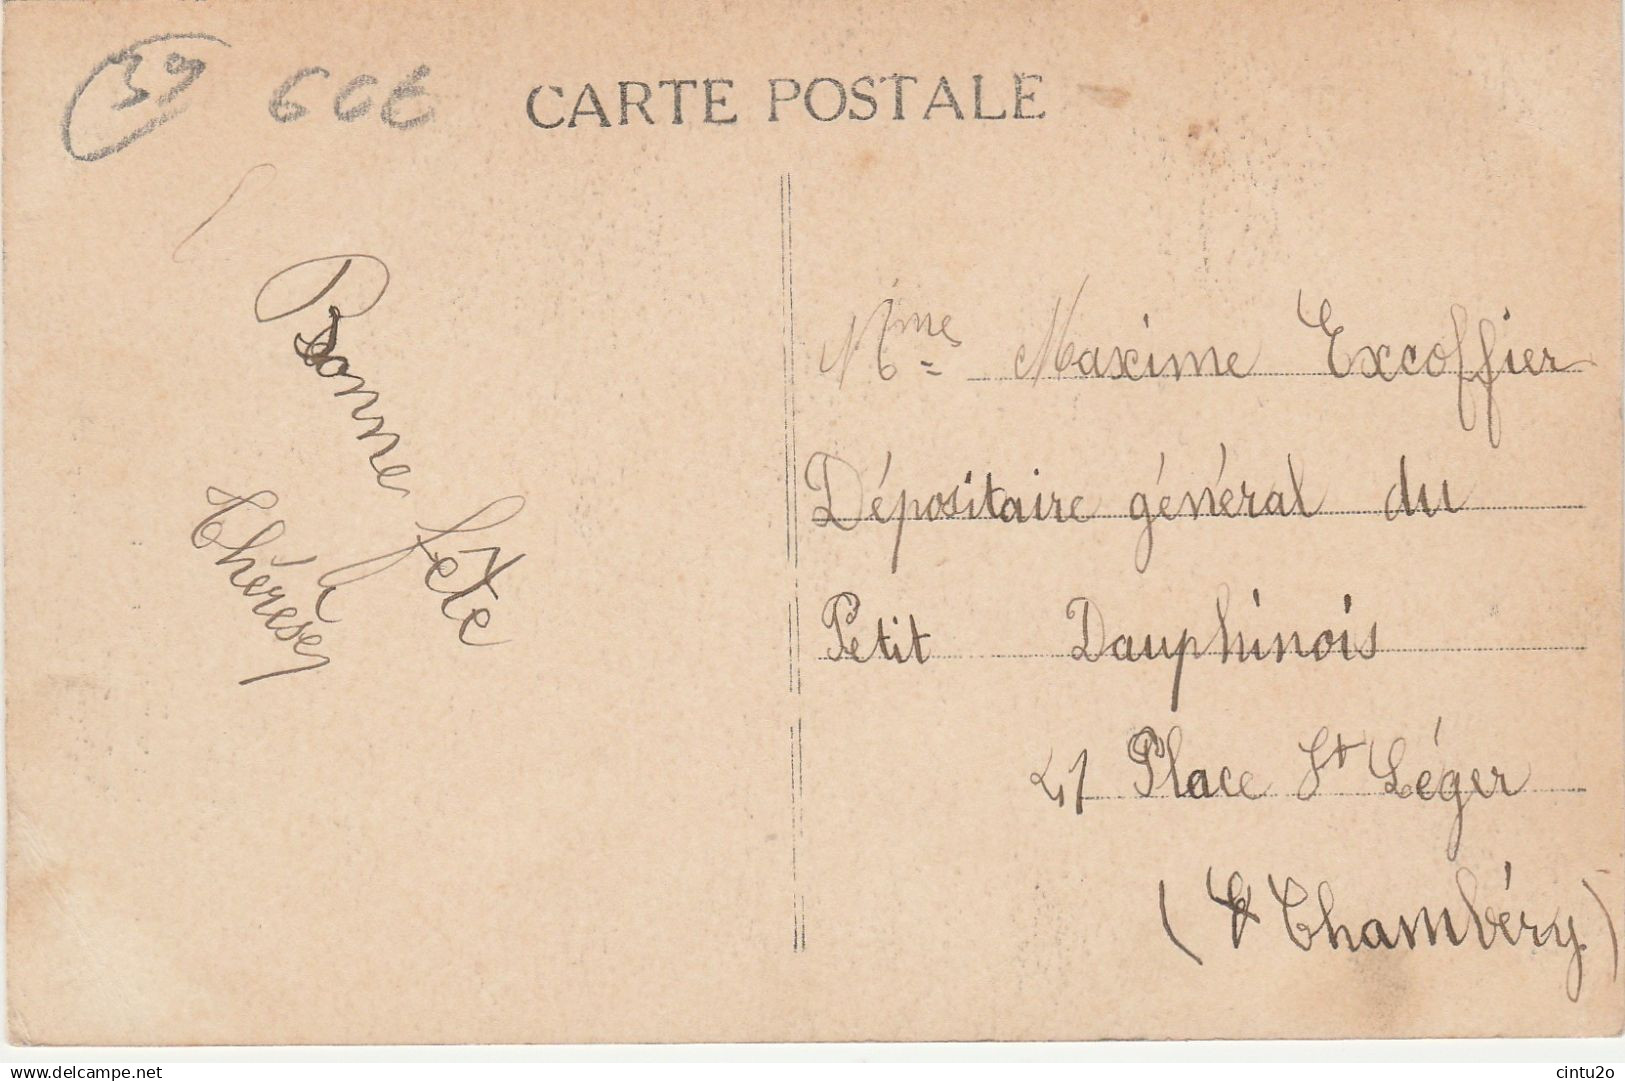 39
CARTE POSTALE
Bonne fête
Thérèse
Mme Maxime Excoffier
Dépositaire général du
Petit Dauphinois
41 Place St Léger
Chambéry)
delcampe.net
cintu2o